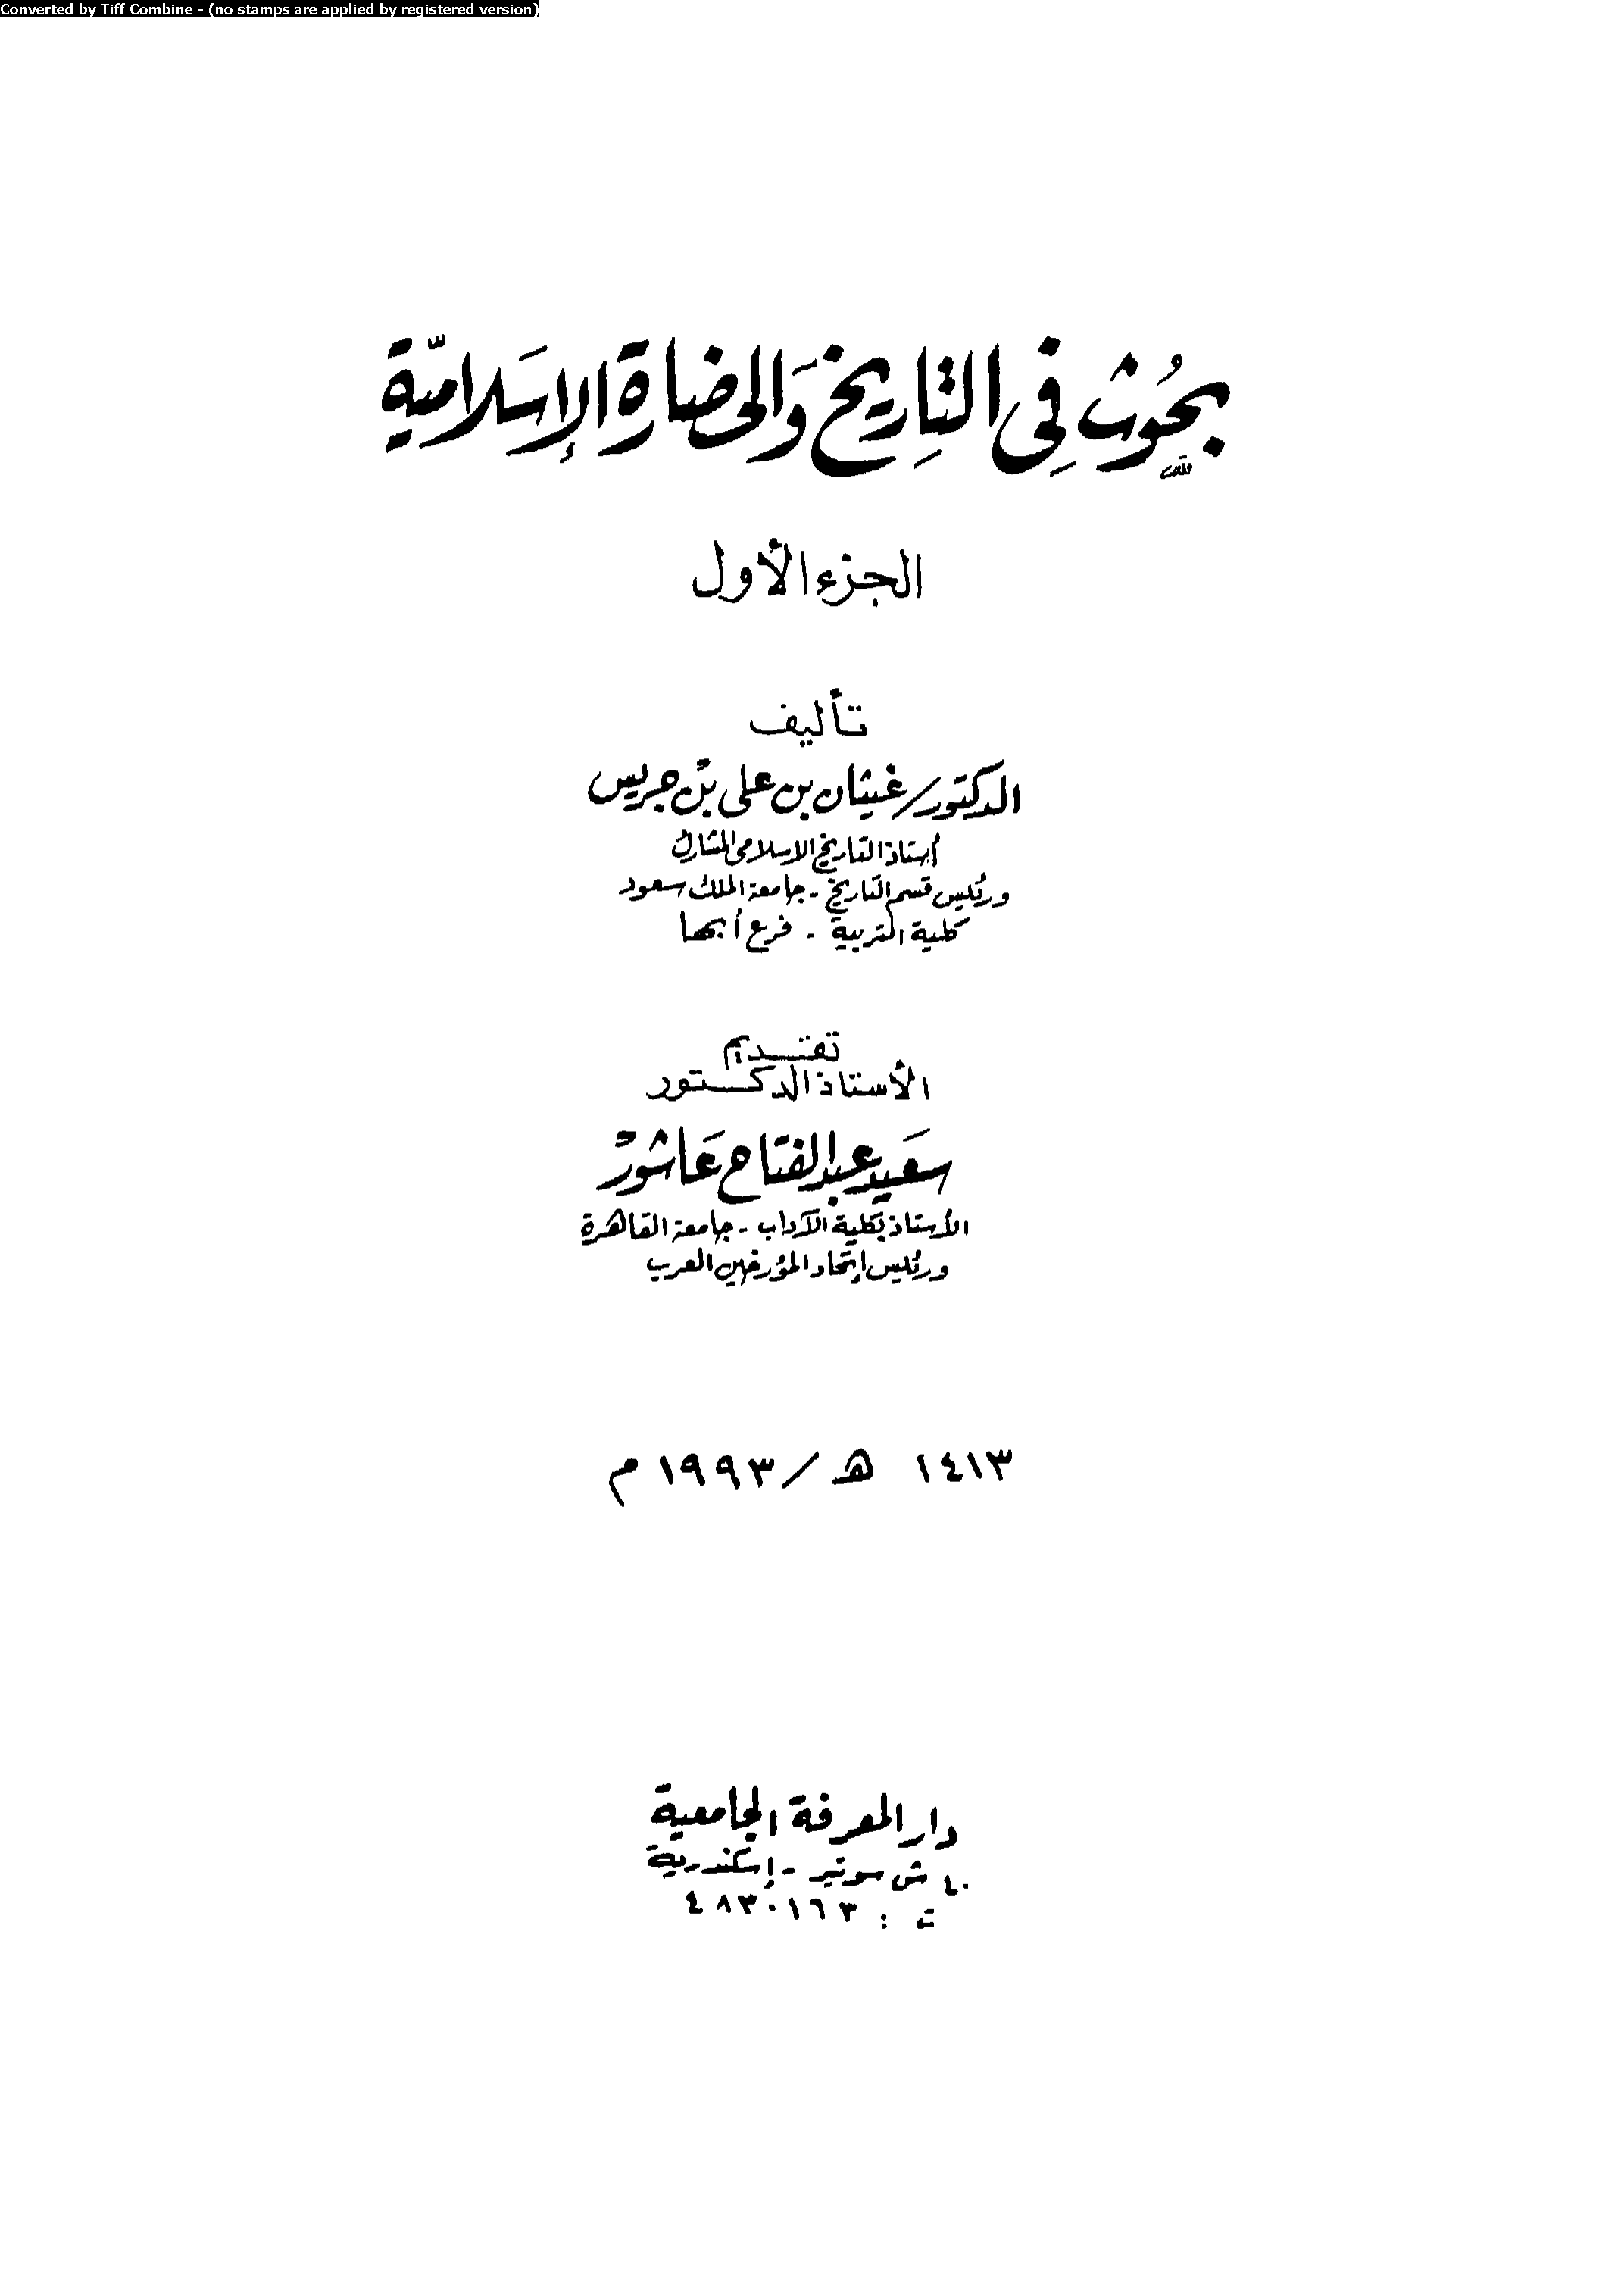 Converted by Tiff Combine - (no stamps are applied by registered version)
بحُوث فِى التِاريخ وَالحضارة الإسَلاميّة
الجزء الأول
تأليف
الدكتور/ غيثان بن على بن جريس
أستاذ التاريخ الإسلامى المشارك
ورئيس قسم التاريخ - جامعة الملك سعود
كلية التربية - فرع أبها
تقديم
الأستاذ الدكتور
سَعيد عبد الفتاح عَاشور
الأستاذ بكلية الآداب - جامعة القاهرة
ورئيس إتحاد المؤرخين العرب
١٤١٣ هـ / ١٩٩٣ م
دار المعرفة الجامعية
٤٠ ش سوتير - إسكندرية
ت : ٤٨٣٠١٦٣